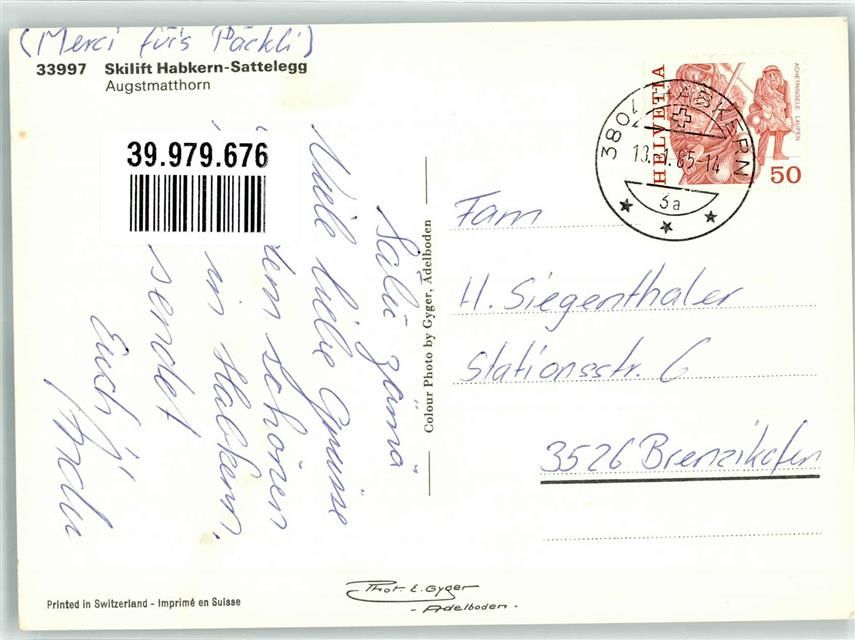 (Merci für's Päckli)
33997 Skilift Habkern-Sattelegg
Augstmatthorn
39.979.676
Salü zämä
Viele liebe Grüsse
dem schönen
in Habkern,
sendet
Euch
Andu
Colour Photo by Gyger, Adelboden
HELVETIA
ACHETRINGELE LAUPEN
50
HABKERN
85-14
3a
Fam
H. Siegenthaler
Stationsstr. 6
3526 Brenzikofen
Printed in Switzerland - Imprimé en Suisse
Phot. E. Gyger
- Adelboden -